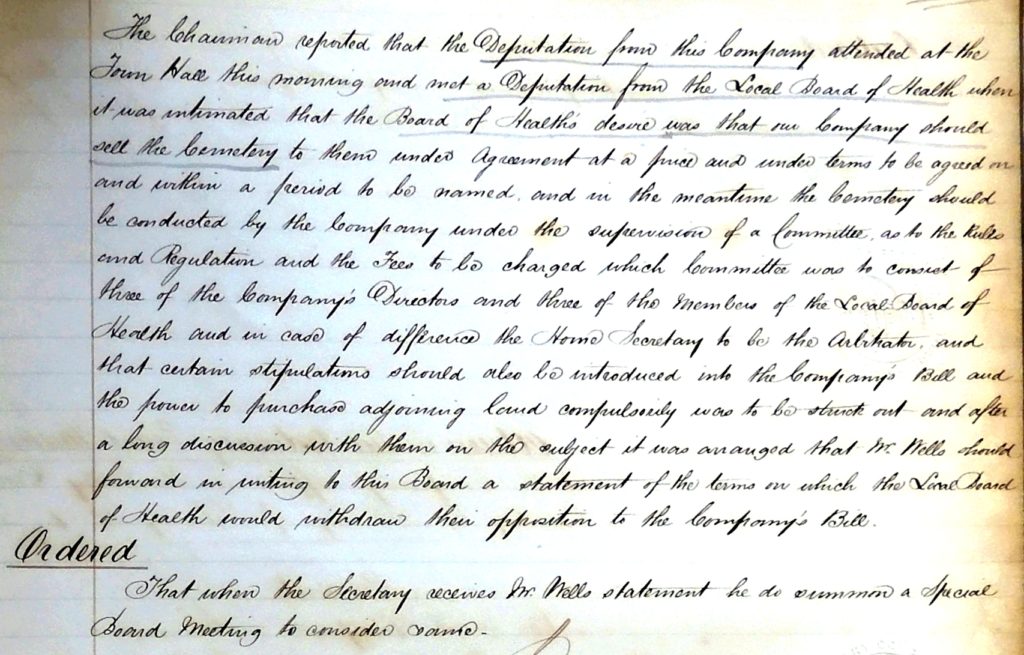 The Chairman reported that the Deputation from this Company attended at the
Town Hall this morning and met a Deputation from the Local Board of Health when
it was intimated that the Board of Health's desire was that our Company should
sell the Cemetery to them under Agreement at a price and under terms to be agreed on
and within a period to be named, and in the meantime the Cemetery should
be conducted by the Company under the supervision of a Committee, as to the Rules
and Regulation and the Fees to be charged which Committee was to consist of
three of the Company's Directors and three of the Members of the Local Board of
Health and in case of difference the Home Secretary to be the Arbitrator, and
that certain stipulations should also be introduced into the Company's Bill and
the power to purchase adjoining land compulsorily was to be struck out and after
a long discussion with them on the subject it was arranged that Mr. Wells should
forward in writing to this Board a statement of the terms on which the Local Board
of Health would withdraw their opposition to the Company's Bill.
Ordered
That when the Secretary receives Mr. Wells statement he do summon a Special
Board Meeting to consider same.